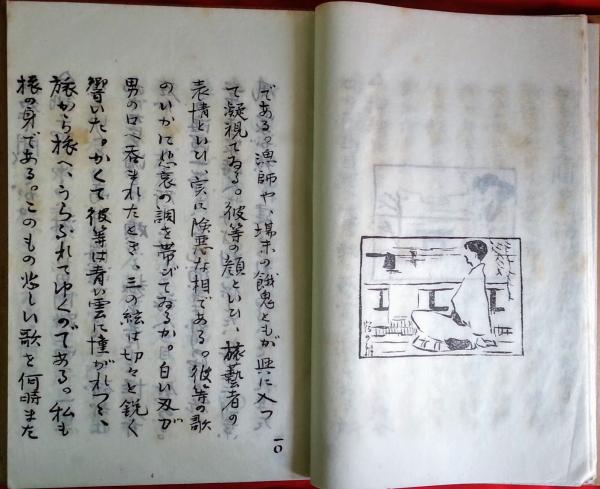 である。漁師や、場末の餓鬼ともが興に入つ
て凝視てゐる。彼等の顔といひ、旅藝者の
表情といひ、実に険悪な相である。彼等の歌
のいかに悲哀の調を帯びてゐるか。白い刄が
男の口へ呑まれたとき、三の絃は切々と鋭く
響いた。かくて彼等は青い雲に憧がれつゝ、
旅から旅へ、うらぶれてゆくのである。私も
旅の身である。このもの悲しい歌を何時また
一〇